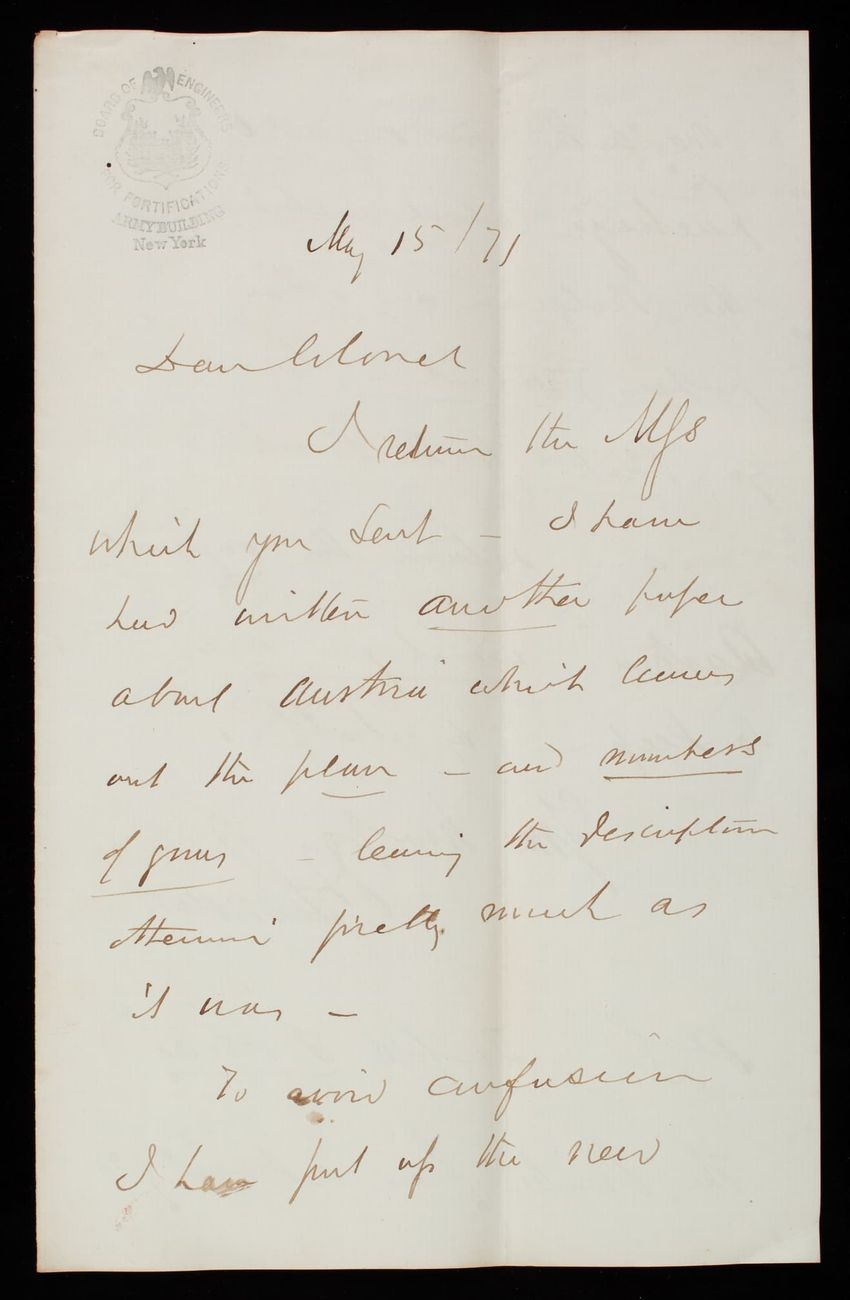 BOARD OF ENGINEERS
FOR FORTIFICATIONS
ARMY BUILDING
New York
May 15 / 71
Dear Colonel
I return the MSS
which you sent – I have
had written another paper
about Austria which leaves
out the plan – and numbers
of guns – leaving the description
otherwise pretty much as
it was –
To avoid confusion
I have put up the new